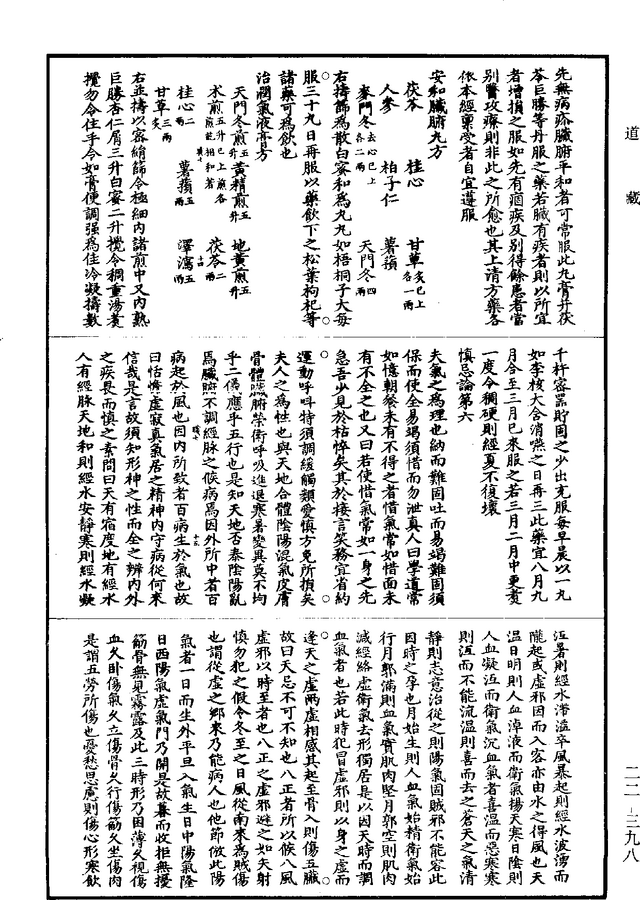 道藏
先無病疾臟腑平和者可常服此九膏丹茯
苓巨勝等丹服之藥若臟有疾者則以所宜
者增損之服如先有痼疾及別得餘患者當
別醫攻療則非此之所愈也其上清方藥各
依本經禀受者自宜遵服
安和臟腑九方
茯苓 桂心 甘草炙已上各一兩
人參 柏子仁 薯蕷
麥門冬去心已上各二兩 天門冬四兩
右擣篩為散白蜜和為九九如梧桐子大每
服三十九日再服以藥飲下之松葉枸杞等
諸藥可為飲也
治潤氣液膏方
天門冬煎五升 黃精煎五升 地黃煎五升
朮煎五升已上煎各煎訖相和著 茯苓二兩
桂心二兩 薯蕷五兩 澤瀉五兩
甘草三兩炙
右並擣以密絹篩令極細內諸煎中又內熟
巨勝杏仁屑三升白蜜二升攪令稠重湯煮
攪勿令住手令如膏便調强為佳冷凝擣數
千杵密器貯固之少出充服每早晨以一九
如李核大含消嚥之日再三此藥宜八月九
月合至三月已來服之若三月二月中更煮
一度令稠硬則經夏不復壞
慎忌論第六
夫氣之為理也納而難固吐而易竭難固須
保而使全易竭須惜而勿泄真人曰學道常
如憶朝飡未有不得之者惜氣常如惜面未
有不全之也又曰若使惜氣常如一身之先
急吾少見於枯悴矣其於接言笑務宜省約
運動呼叫特須調緩觸類愛慎方免所損矣
夫人之為性也與天地合體陰陽混氣皮膚
骨體臟腑榮衛呼吸進退寒暑變異莫不均
乎二儀應乎五行也是知天地否泰陰陽亂
焉臟腑不調經脉之候病焉因外所中者百
病起於風也因內所致者百病生於氣也故
曰恬惔虛寂真氣居之精神內守病從何來
信哉是言故須知形神之性而全之辨內外
之疾畏而慎之素問曰天有宿度地有經水
人有經脉天地和則經水安靜寒則經水凝
沍暑則經水沸溢卒風暴起則經水波湧而
隴起或虛邪因而入客亦由水之得風也天
溫日明則人血淖液而衛氣揚天寒日陰則
人血凝沍而衛氣沉血氣者喜溫而惡寒寒
則沍而不能流溫則喜而去之蒼天之氣清
靜則志意治從之則陽氣固賊邪不能容此
因時之孕也月始生則人血氣始精衛氣始
行月郭滿則血氣實肌肉堅月郭空則肌肉
減經絡虛衛氣去形獨居是以因天時而調
血氣者也若此時犯冒虛邪則以身之虛而
逢天之虛兩虛相感其起至骨入則傷五臟
故曰天忌不可不知也八正者所以候八風
虛邪以時至者也八正之虛邪避之如矢射
慎勿犯之假令冬至之日風從南來為賊傷
也謂從虛之鄉來乃能病人也他節倣此陽
氣者一日而生外平旦入氣生日中陽氣隆
日西陽氣虛氣門乃閉是故暮而收拒無擾
筋骨無見霧露及此三時形乃困薄久視傷
血久卧傷氣久立傷骨久行傷筋久坐傷肉
是謂五勞所傷也憂愁思慮則傷心形寒飲
二二-三九八